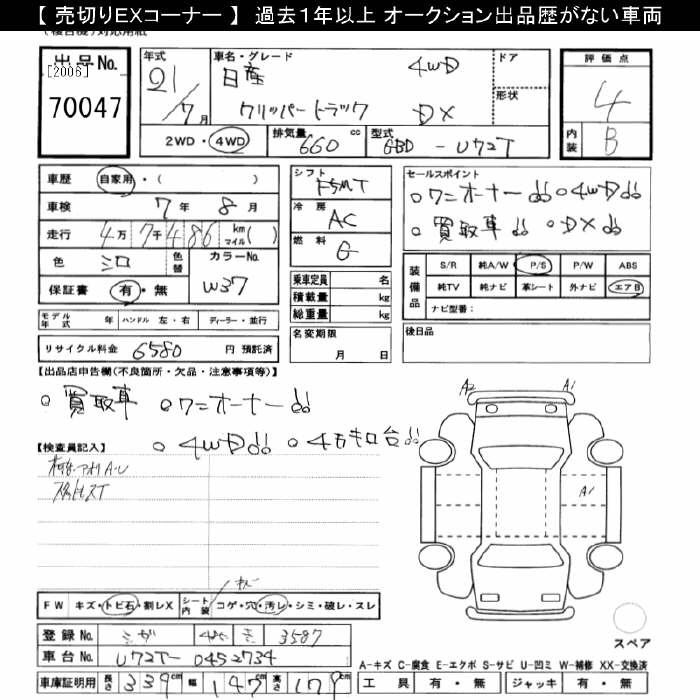 【 売切りEXコーナー 】 過去１年以上 オークション出品歴がない車両
出品No.
[2006]
70047
年式
21/7月
車名・グレード
日産
クリッパートラック
4WD
DX
ドア
形状
評価点
4
内装
B
2WD・4WD
排気量
660 cc
型式
GBD - U72T
車歴 自家用・( )
車検 7年 8月
走行 4万7千486 km マイル( )
色 シロ 色替
カラーNo. W37
保証書 有・無
モデル年式 年 ハンドル 左・右 ディーラー・並行
リサイクル料金 6580 円 預託済
シフト F5MT
冷房 AC
燃料 G
乗車定員 名
積載量 kg
総重量 kg
名変期限 月 日
セールスポイント
○ワンオーナー!! ○4WD!!
○買取車!! ○DX!!
装備品
S/R 純A/W P/S P/W ABS
純TV 純ナビ 革シート 外ナビ エアB
ナビ型番：
後日品
【出品店申告欄(不良箇所・欠品・注意事項等)】
○買取車 ○ワンオーナー!!
○4WD!! ○4万キロ台!!
【検査員記入】
A2 A1
A1
FW キズ・トビ石・割レX シート内装 コゲ・穴・汚レ・シミ・破レ・スレ
登録No. シガ 3587
車台No. U72T- 0452734
車庫証明用 長さ 339cm 幅 147cm 高さ 179cm
スペア
A-キズ C-腐食 E-エクボ S-サビ U-凹ミ W-補修 XX-交換済
工具 有・無 ジャッキ 有・無